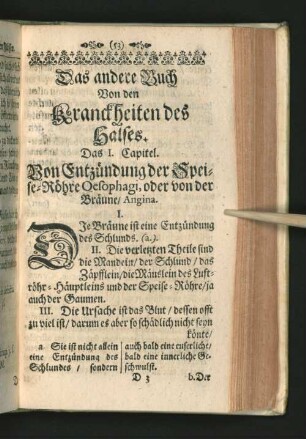 (53)
Das andere Buch
Von den
Kranckheiten des
Halses.
Das I. Capitel.
Von Entzündung der Spei-
se-Röhre Oesophagi, oder von der
Bräune/ Angina.
I.
DIe Bräune ist eine Entzündung
des Schlunds. (a.).
II. Die verletzten Theile sind
die Mandeln/ der Schlund/ das
Zäpfflein/ die Mäuslein des Luft-
röhr-Häuptleins und der Speise-Röhre/ ja
auch der Gaumen.
III. Die Ursache ist das Blut/ dessen offt
zu viel ist/ darum es aber so schädlich nicht seyn
könte/
a Sie ist nicht allein
eine Entzündung des
Schlundes/ sondern
auch bald eine euserliche/
bald eine innerliche Ge-
schwulst.
D 3
b. Der